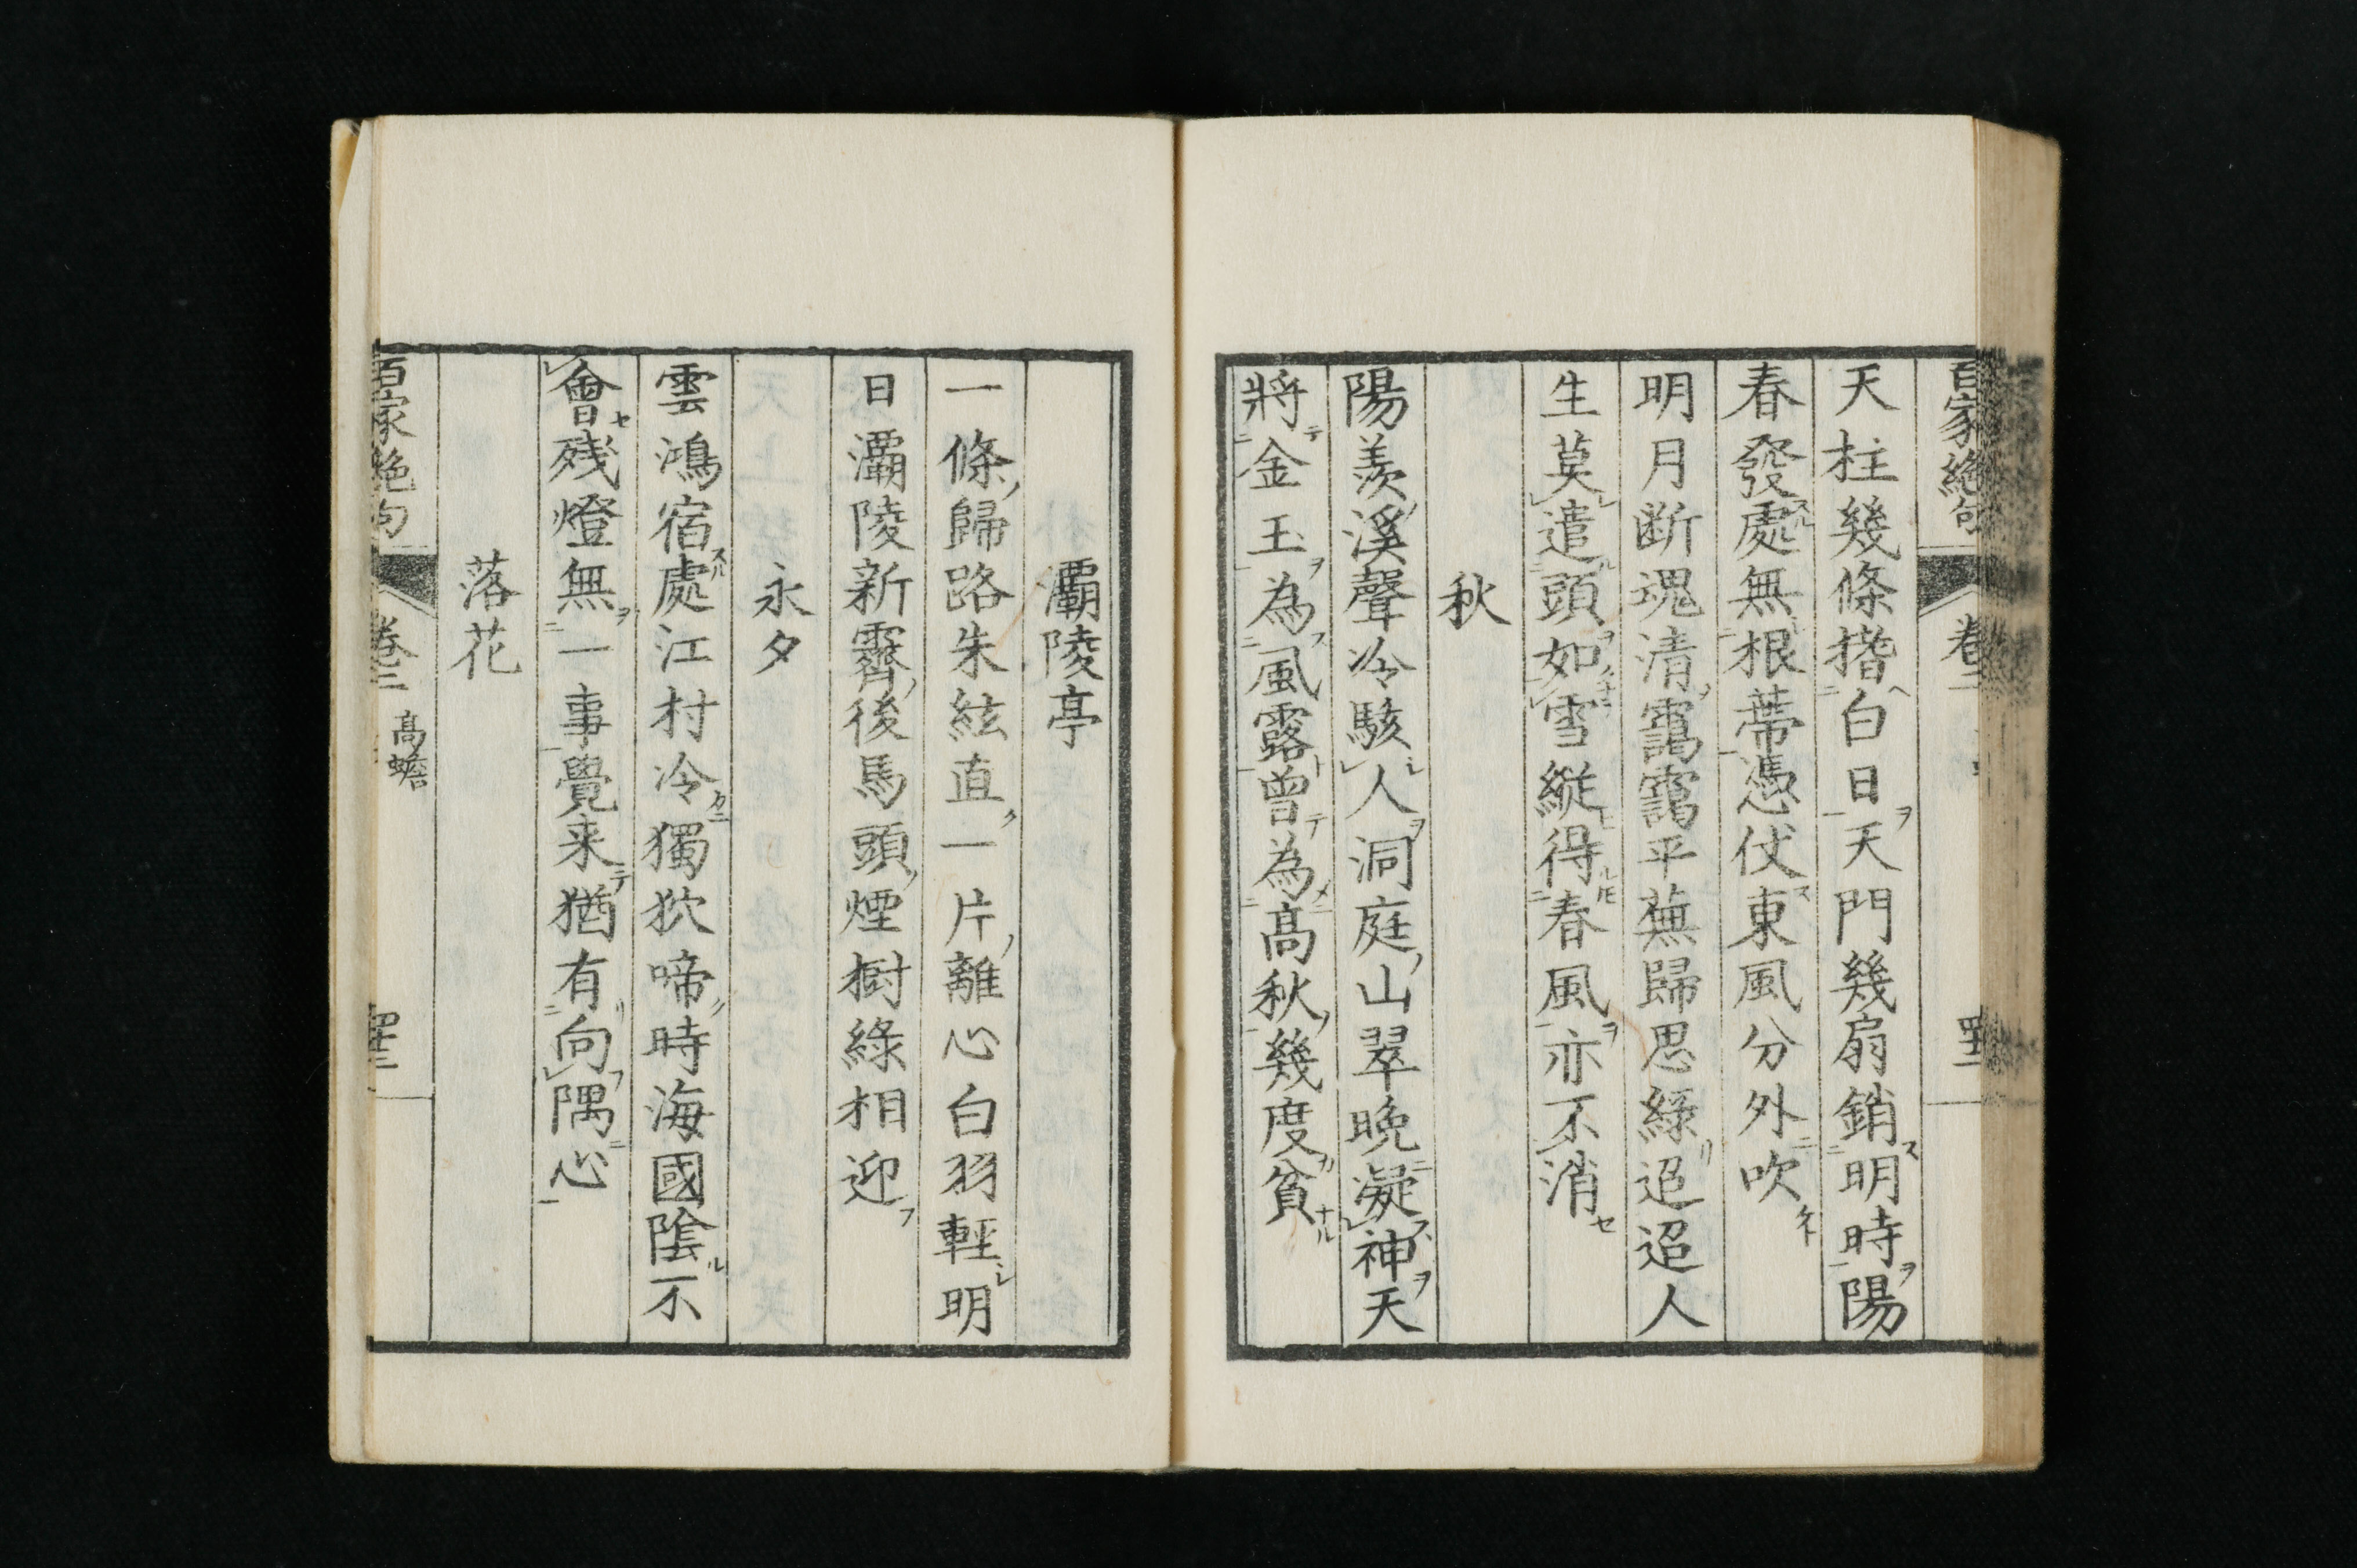 百家絶句 卷二 四十二
天柱幾條搘白日天門幾扇銷明時陽
春發處無根蒂憑仗東風分外吹
明月断魂清靄靄平蕪歸思緑迢迢人
生莫遣頭如雪縦得春風亦不消
秋
陽羨溪聲冷駭人洞庭山翠晩凝神天
將金玉為風露曾為高秋幾度貧
灞陵亭
一條歸路朱絃直一片離心白羽輕明
日灞陵新霽後馬頭煙樹緑相迎
永夕
雲鴻宿處江村冷獨狖啼時海國陰不
會殘燈無一事覺来猶有向隅心
落花
百家絶句 卷二 高蟾 四十二